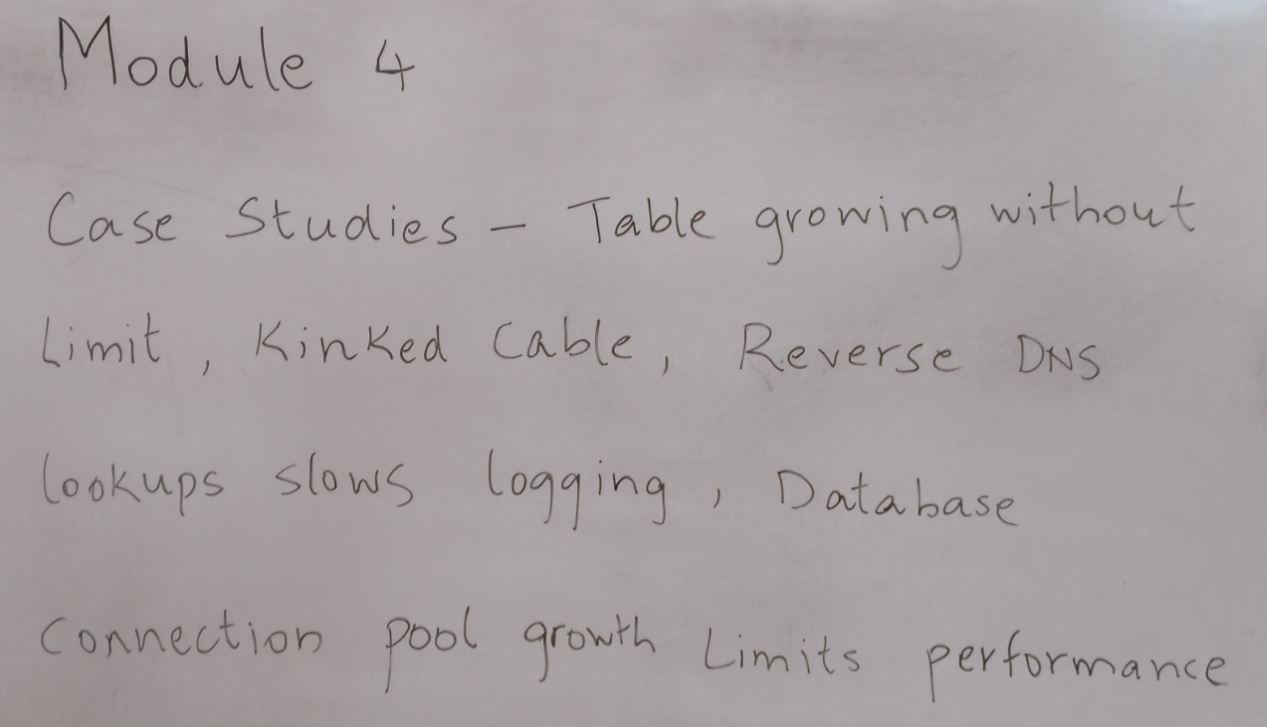 Module 4
Case Studies - Table growing without
Limit, Kinked Cable, Reverse DNS
lookups slows logging, Database
Connection pool growth Limits performance